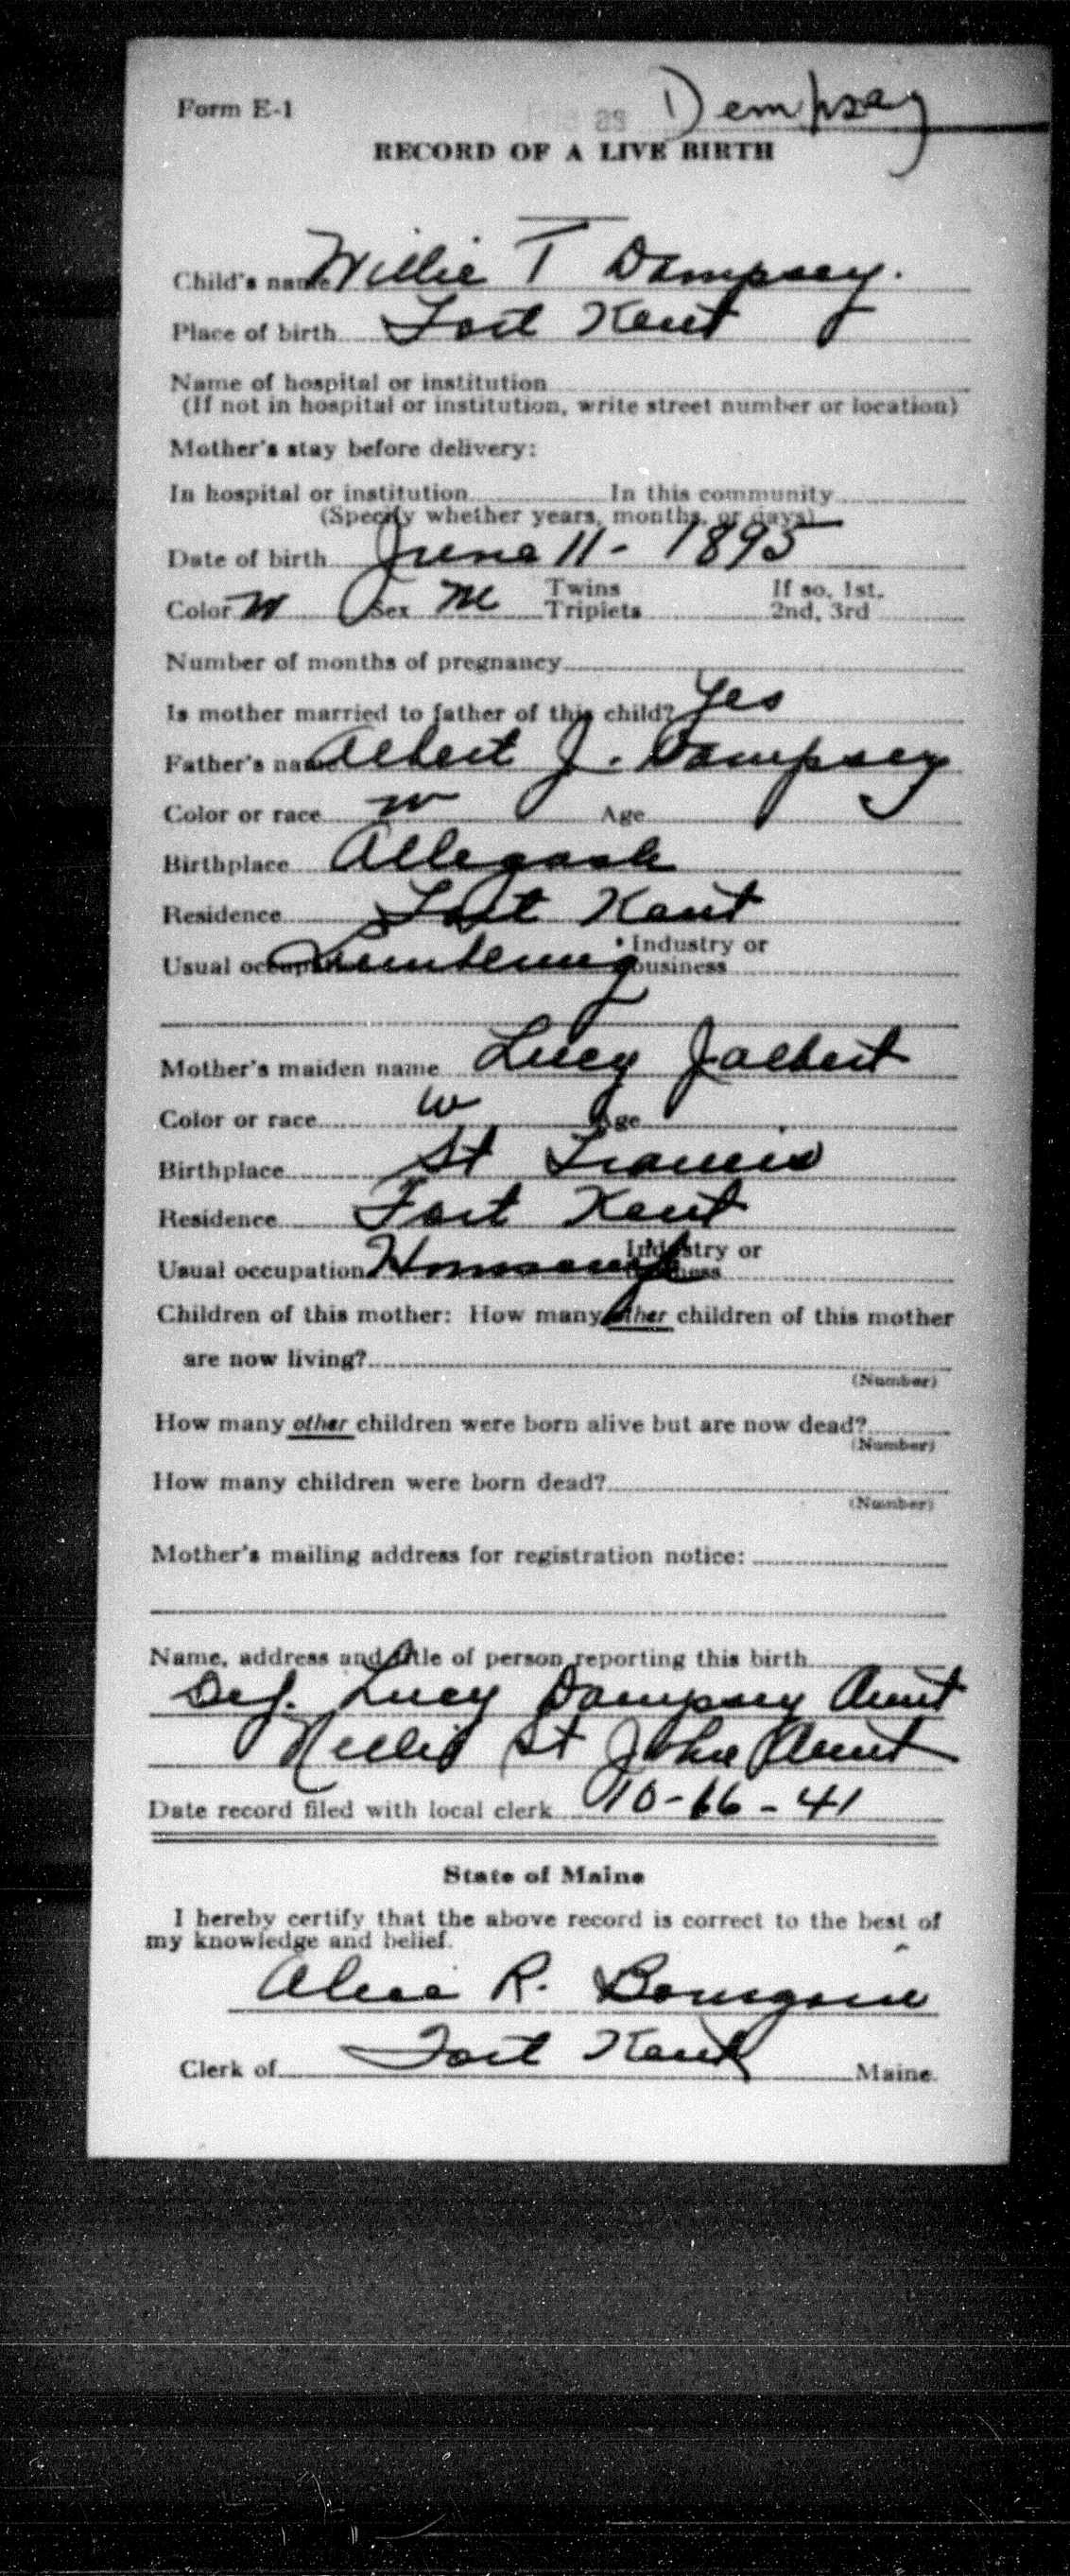 Form E-1
Dempsey
RECORD OF A LIVE BIRTH
Child's name Willie T Dempsey.
Place of birth Fort Kent
Name of hospital or institution
(If not in hospital or institution, write street number or location)
Mother's stay before delivery:
In hospital or institution In this community
(Specify whether years, months, or days)
Date of birth June 11 - 1895
Color W Sex M Twins Triplets If so, 1st, 2nd, 3rd
Number of months of pregnancy
Is mother married to father of this child? Yes
Father's name Albert J. Dampsey
Color or race w Age
Birthplace Allegash
Residence Fort Kent
Usual occupation Lumbering Industry or business
Mother's maiden name Lucy Jalbert
Color or race w Age
Birthplace St Francis
Residence Fort Kent
Usual occupation Industry or business
Children of this mother: How many other children of this mother
are now living?
(Number)
How many other children were born alive but are now dead?
(Number)
How many children were born dead?
(Number)
Mother's mailing address for registration notice:
Name, address and title of person reporting this birth
Lucy Dampsey Aunt
Nellie St John Aunt
Date record filed with local clerk 10-16-41
State of Maine
I hereby certify that the above record is correct to the best of
my knowledge and belief.
Alice R. Bourgoin
Clerk of Fort Kent Maine.